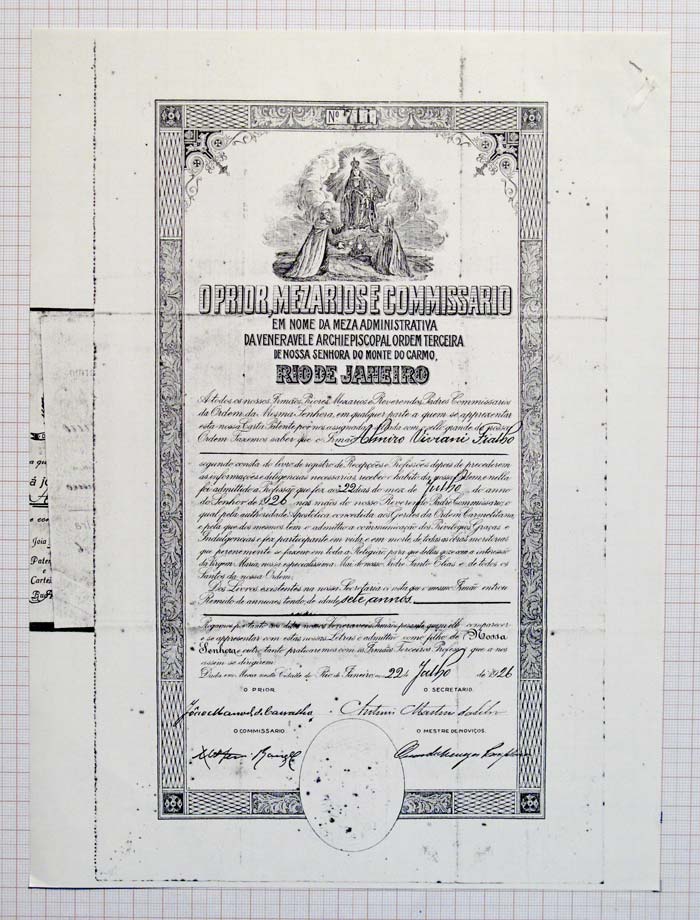 Nº 711
O PRIOR, MEZARIOS E COMMISSARIO
EM NOME DA MEZA ADMINISTRATIVA
DA VENERAVEL E ARCHIEPISCOPAL ORDEM TERCEIRA
DE NOSSA SENHORA DO MONTE DO CARMO,
RIO DE JANEIRO
A todos os nossos Irmãos Priores, Mezarios e Reverendos Padres Commissarios
da Ordem da Mesma Senhora, em qualquer parte a quem se apprezentar
esta nossa Carta Patente por nós assignada e sellada com o sello grande de nossa
Ordem Fazemos saber que o Irmão Almiro Viviani Fialho
segundo consta do livro de registro de Recepções e Profissões depois de precederem
as informações e diligencias necessarias recebeu o habito da nossa Ordem, e nella
foi admittido a Profissão que fez aos 22 dias do mez de Julho do anno
do Senhor de 1926 nas mãos do nosso Reverendo Padre Commissario, o
qual pela authoridade Apostolica concedida aos Geraes da Ordem Carmelitana,
e pela que dos mesmos tem o admittio a communicação dos Privilegios, Graças e
Indulgencias e fez participante em vida, e em morte, de todas as obras meritorias
que perennemente se fazem em toda a Religião para que dellas goze com a intercessão
da Virgem Maria, nossa especialissima Mãi do nosso Padre Santo Elias e de todos os
Santos da nossa Ordem.
Dos Livros existentes na nossa Secretaria consta que o mesmo Irmão entrou
Remido de annuaes tendo de idade sete annos.
Rogamos portanto aos ditos nossos Veneraveis Irmãos perante quem elle comparecer
e se apprezentar com estas nossas Letras o admittão como filho de Nossa
Senhora e outro tanto praticaremos com os Irmãos Terceiros Professos que a nos
assim se dirigirem.
Dada em Meza nesta Cidade do Rio de Janeiro em 22 de Julho de 1926
O PRIOR O SECRETARIO
João Manoel de Carvalho
O COMMISSARIO O MESTRE DE NOVIÇOS
Joia
Paten
e
Cartei